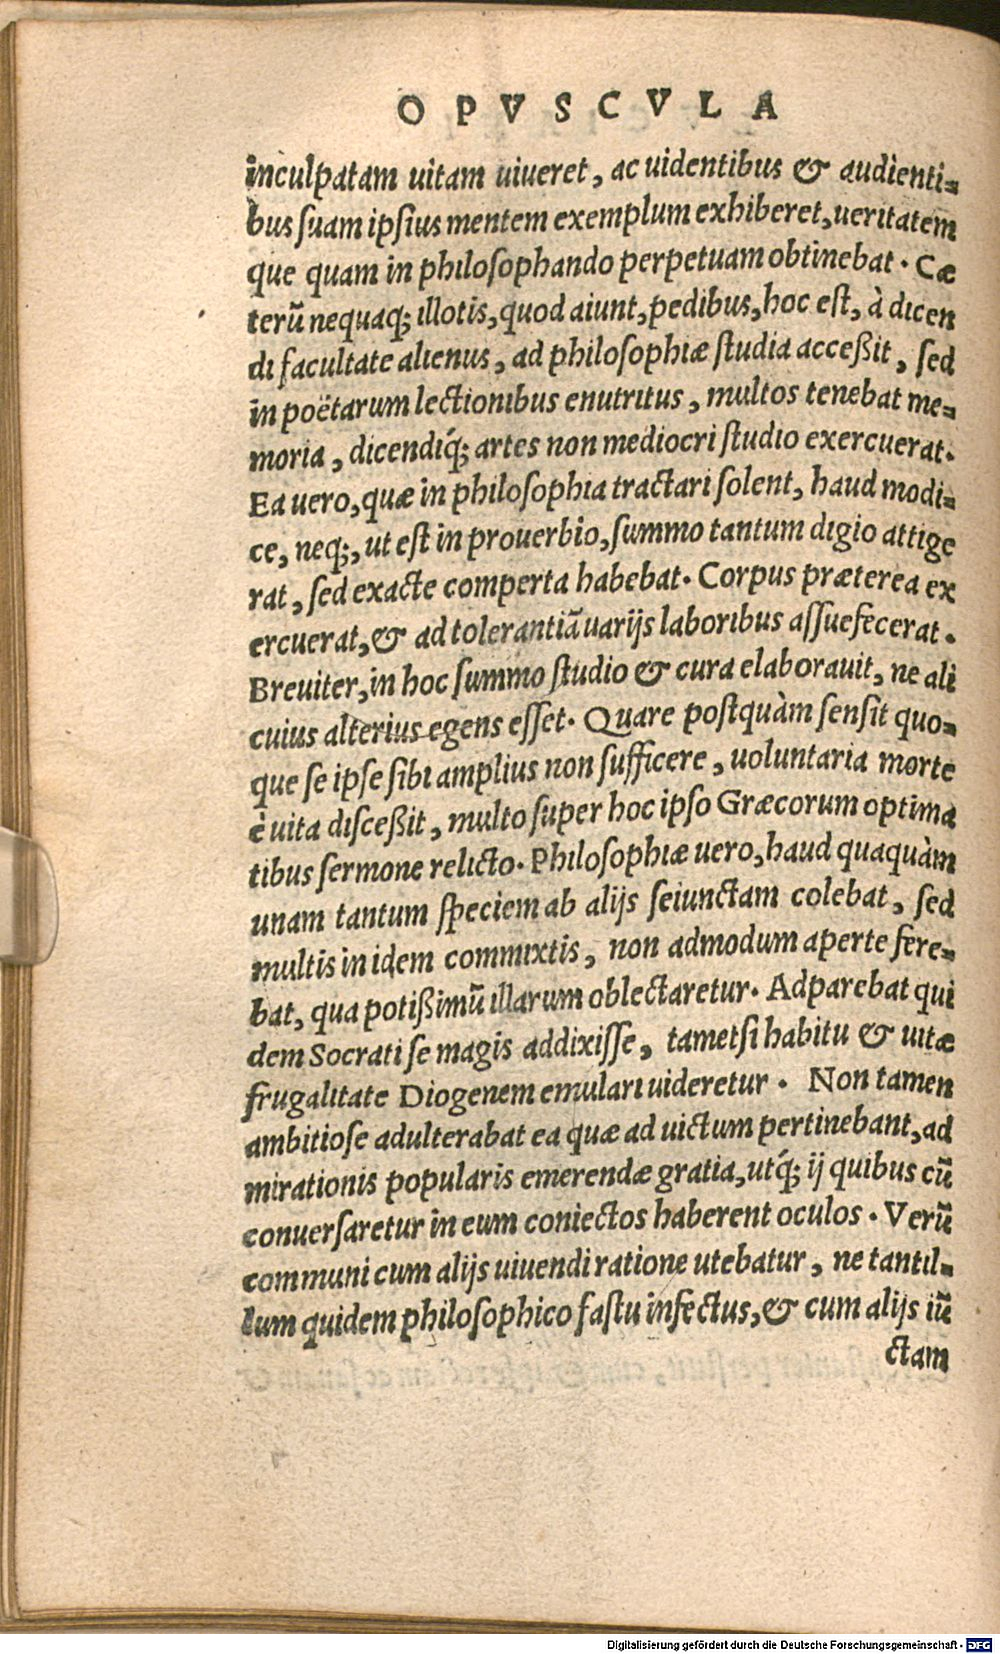 OPVSCVLA
inculpatam uitam uiueret, ac uidentibus & audienti-
bus suam ipsius mentem exemplum exhiberet, ueritatem
que quam in philosophando perpetuam obtinebat. Cæ
terū nequaq; illotis, quod aiunt, pedibus, hoc est, à dicen
di facultate alienus, ad philosophiæ studia acceßit, sed
in poëtarum lectionibus enutritus, multos tenebat me-
moria, dicendiq́; artes non mediocri studio exercuerat.
Ea uero, quæ in philosophia tractari solent, haud modi-
ce, neq;, ut est in prouerbio, summo tantum digio attige
rat, sed exacte comperta habebat. Corpus præterea ex
ercuerat, & ad tolerantiā uarijs laboribus assuefecerat.
Breuiter, in hoc summo studio & cura elaborauit, ne ali
cuius alterius egens esset. Quare postquàm sensit quo-
que se ipse sibi amplius non sufficere, uoluntaria morte
è uita disceßit, multo super hoc ipso Græcorum optima
tibus sermone relicto. Philosophiæ uero, haud quaquàm
unam tantum speciem ab alijs seiunctam colebat, sed
multis in idem commixtis, non admodum aperte fere-
bat, qua potißimū illarum oblectaretur. Adparebat qui
dem Socrati se magis addixisse, tametsi habitu & uitæ
frugalitate Diogenem emulari uideretur. Non tamen
ambitiose adulterabat ea quæ ad uictum pertinebant, ad
mirationis popularis emerendæ gratia, utq́; ij quibus cū
conuersaretur in eum coniectos haberent oculos. Verū
communi cum alijs uiuendi ratione utebatur, ne tantil-
lum quidem philosophico fastu infectus, & cum alijs iū
ctam
Digitalisierung gefördert durch die Deutsche Forschungsgemeinschaft - DFG